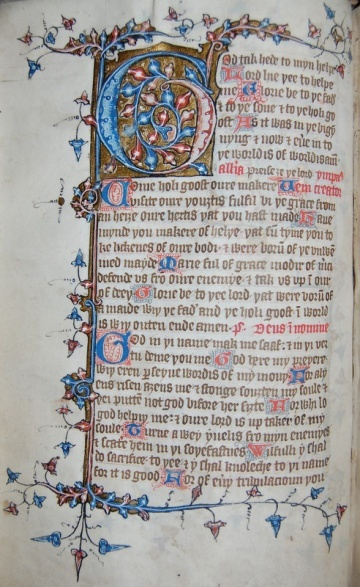 God tak hede to myn helpe
Lord hie yee to helpe
me Glorie be to ye fadˈ
& to ye sone & to ye holi go
ost As it was in ye bigȳ
nyng & now & euˈe in to
ye world is of worldis amē
allia preise ȝe ye lord ympnˈ
Come holi goost oure makere Veni creator
visite oure youȝtis fulfil wiˈ yi grace from
an heiȝe oure hertis yat you hast maad Haue
mynde you makere of helpe yat sū tyme you to
ke likenes of oure bodi & were borū of ye vnwē
med mayde Marie ful of grace modir of mˈci
defende vs fro oure enemye & tak vs vp ī our
of deeyˈ Glorie be to yee lord yat were borū of
a maide wiy ye fadˈ and ye holi goost ī world
is wiy outen ende amen ps. Deus ī nomine
God in yi name mak me saaf & in yi vˈ
tu deme you me God here my preyere
wiy eren pˈseyue wordis of my mouy For aly
ens risen aȝens me & stronge souȝten my soule &
yei putte not god bifore her siȝte For whi lo
god helpiy me & oure lord is up taker of my
soule Turne awey yuelis fro myn enemyes
& scate hem in yi soyefastnes Wilfulli y schal
do sacrifice to yee & y schal knoleche to yi name
for it is good For of euˈy tribulacioun you